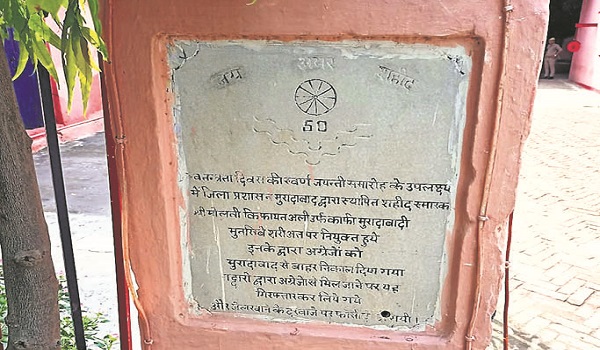 जय अमर शहीद
50
स्वतन्त्रता दिवस की स्वर्ण जयन्ती समारोह के उपलक्ष्य
में जिला प्रशासन मुरादाबाद द्वारा स्थापित शहीद स्मारक
श्री मोलवी किफायत अली उर्फ काफी मुरादाबादी
मुनसिबे शरीअत पर नियुक्त हुये
इनके द्वारा अग्रेजों को
मुरादाबाद से बाहर निकाल दिया गया
गद्दारो द्वारा अंग्रेजों से मिल जाने पर यह
गिरफ्तार कर लिये गये
और जेलखाने के दरवाजे पर फांसी गयी।